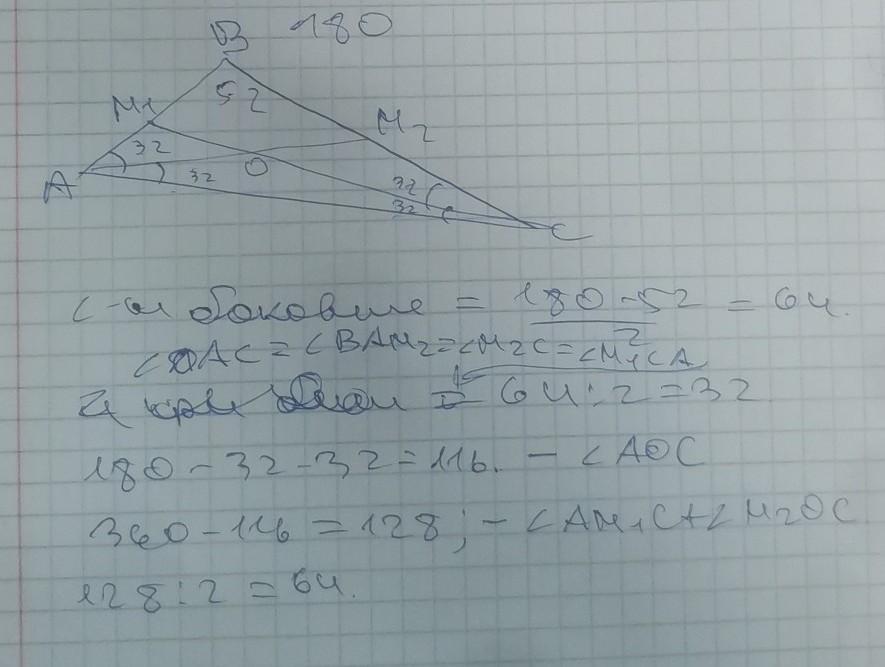 B 180
52
M1 M2
32
A 32 O 32
32 C
∠-ы боковые = 180-52 / 2 = 64.
∠OAC = ∠BAM2 = ∠M2C = ∠M1CA
= 64:2=32
180-32-32=116. - ∠AOC
360-116=128; - ∠AM1C+∠M2OC
128:2=64.